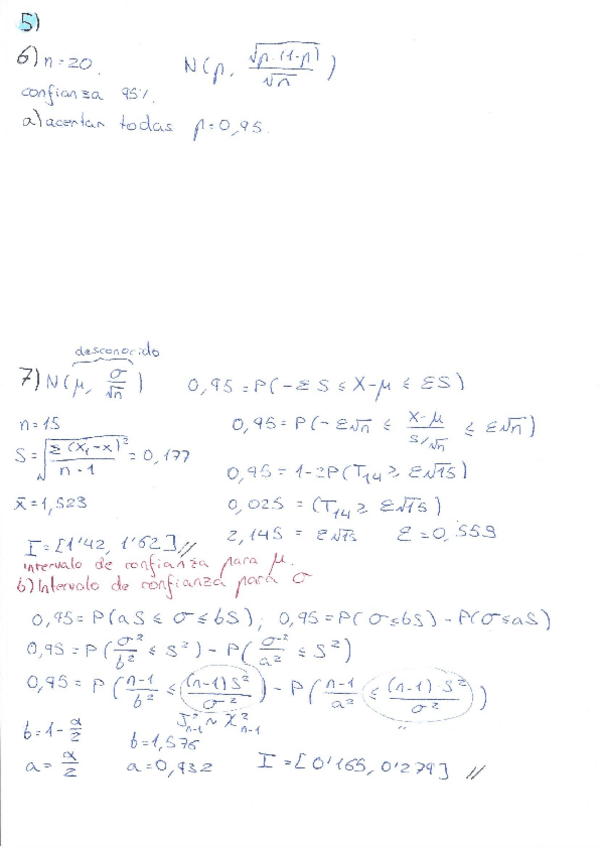 5)
6) n=20. N(p, √(p·(1-p))/√n)
confianza 95%.
a) acertar todas p=0,95.
desconocido
7) N(μ, σ/√n) 0,95 = P(-ΣS ≤ X-μ ≤ ΣS)
n=15 0,95 = P(-Σ√n ≤ (X-μ)/(S/√n) ≤ Σ√n)
S = √(Σ(X₁-x)²/(n-1)) = 0,177 0,95 = 1-2P(T₁₄ ≥ Σ√15)
x̄=1,523 0,025 = (T₁₄ ≥ Σ√15)
I=[1'42, 1'62]// 2,145 = Σ√15 Σ=0,553
intervalo de confianza para μ.
b) Intervalo de confianza para σ
0,95 = P(aS ≤ σ ≤ bS); 0,95 = P(σ≤bS) - P(σ≤aS)
0,95 = P(σ²/b² ≤ S²) - P(σ²/a² ≤ S²)
0,95 = P((n-1)/b² ≤ (n-1)S²/σ²) - P((n-1)/a² ≤ (n-1)·S²/σ²)
b = 1-α/2 b=1,576
a = α/2 a=0,932 I=[0'165, 0'279] //